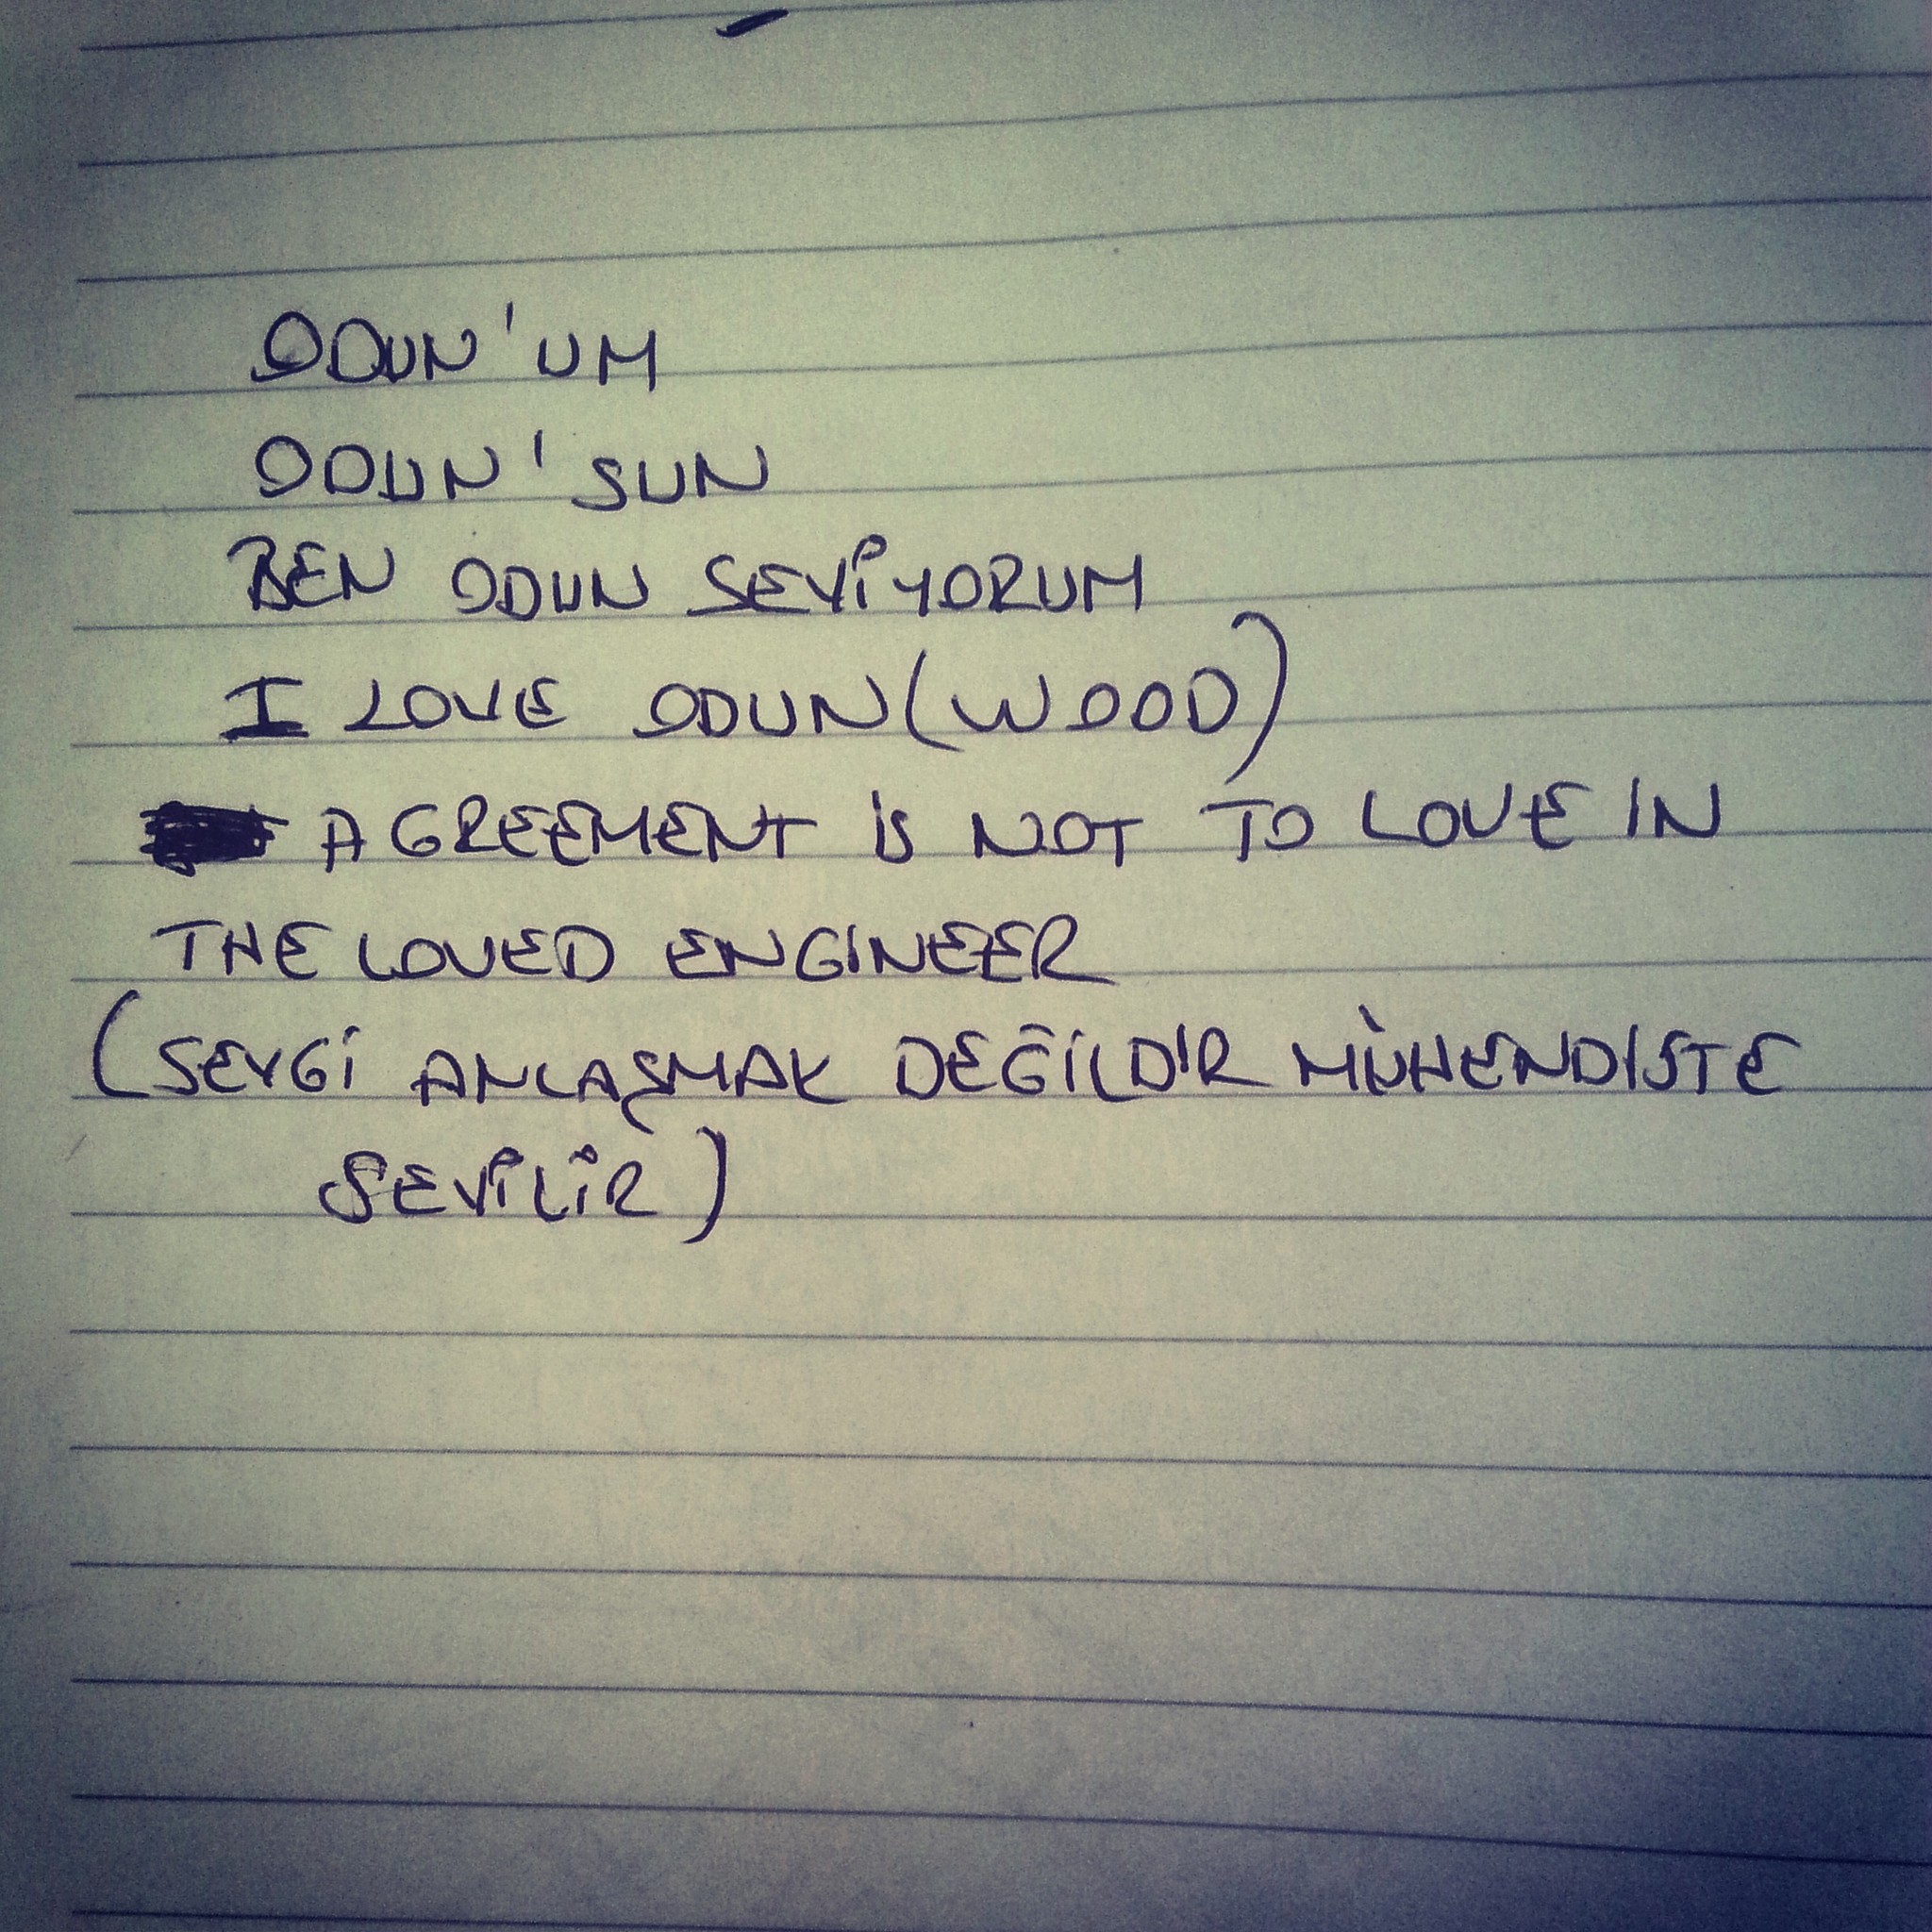 ODUN'UM
ODUN'SUN
BEN ODUN SEVİYORUM
I LOVE ODUN (WOOD)
AGREEMENT İS NOT TO LOVE IN
THE LOVED ENGINEER
(SEVGİ ANLAŞMAK DEĞİLDİR MÜHENDISTE
SEVİLİR)